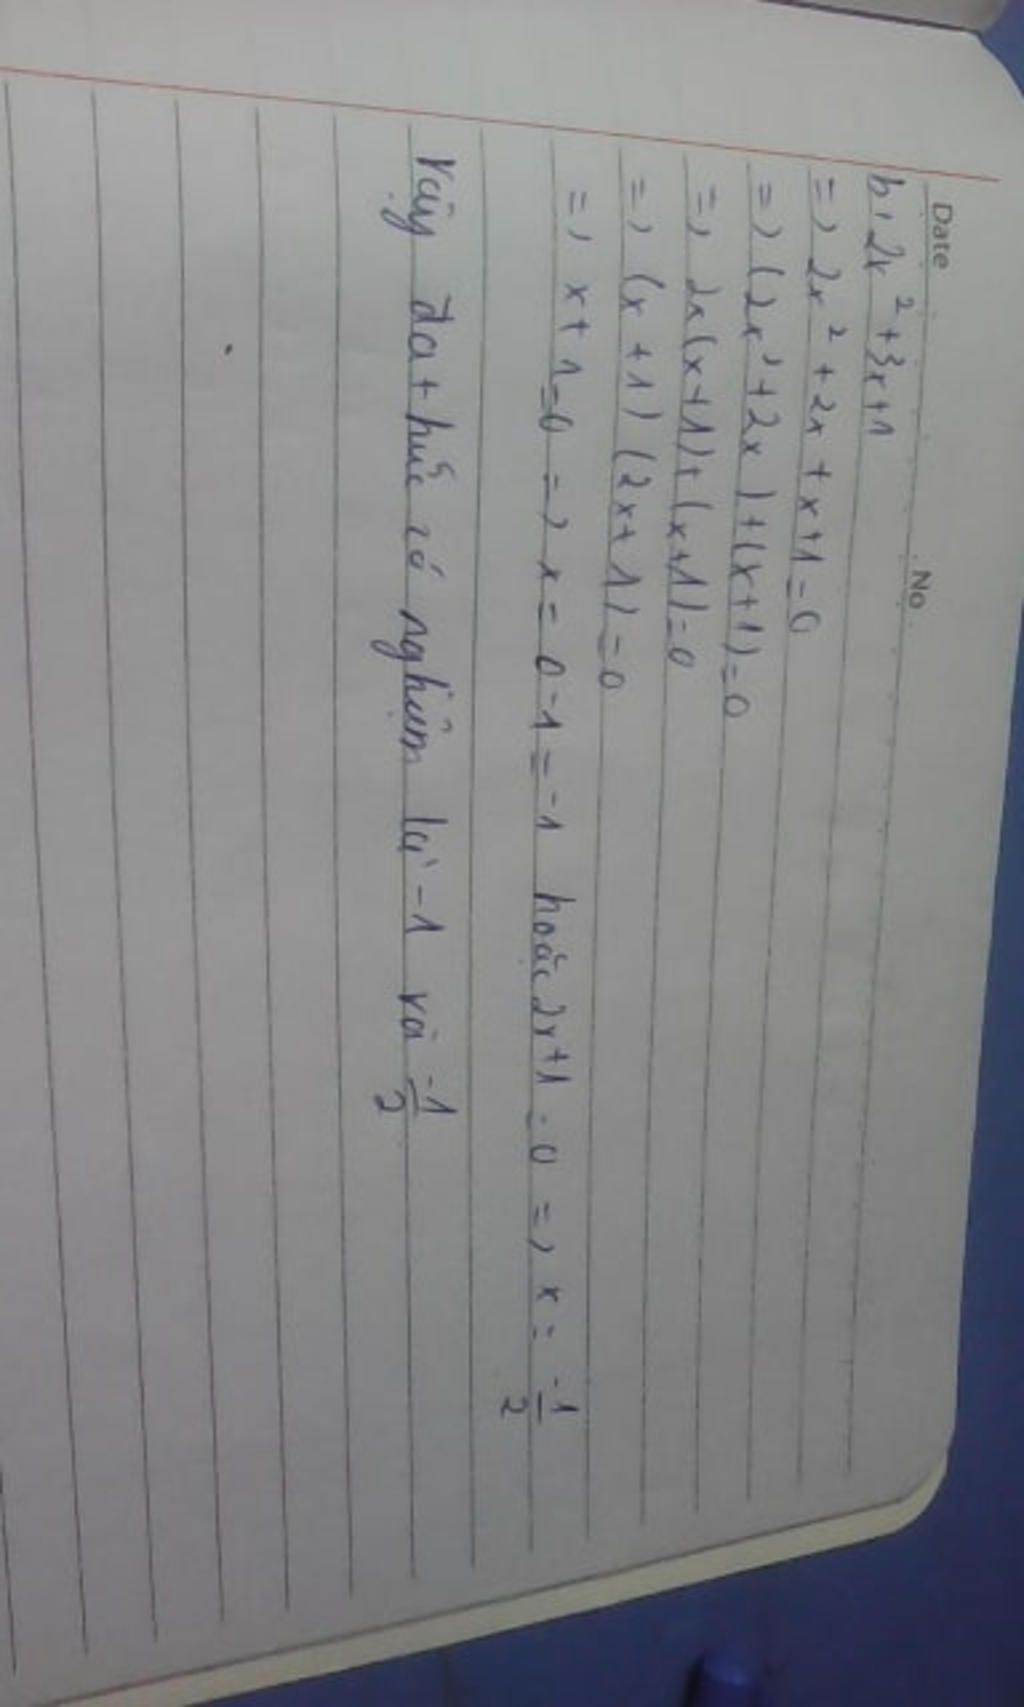 Date No.
b, 2x² + 3x + 1
=> 2x² + 2x + x + 1 = 0
=> (2x² + 2x) + (x + 1) = 0
=> 2x(x + 1) + (x + 1) = 0
=> (x + 1) (2x + 1) = 0
=> x + 1 = 0 => x = 0 - 1 = -1 hoặc 2x + 1 = 0 => x = -1/2
Vậy đa thức có nghiệm là -1 và -1/2